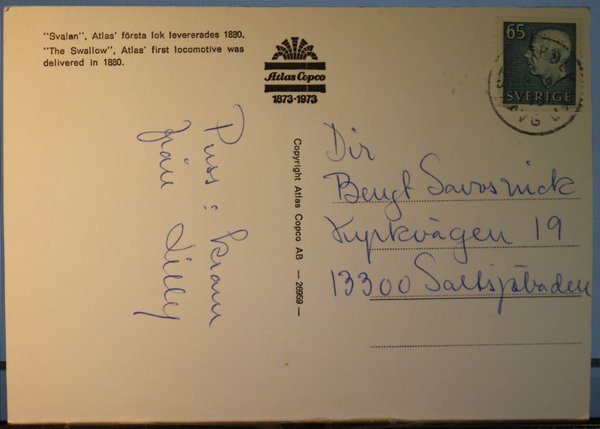 "Svalan", Atlas' första lok levererades 1880.
"The Swallow", Atlas' first locomotive was
delivered in 1880.
Atlas Copco
1873-1973
65
SVERIGE
Copyright Atlas Copco AB — 26959 —
Puss & kram
från Lilly
Dir
Bengt
Kyrkvägen 19
13300 Saltsjöbaden